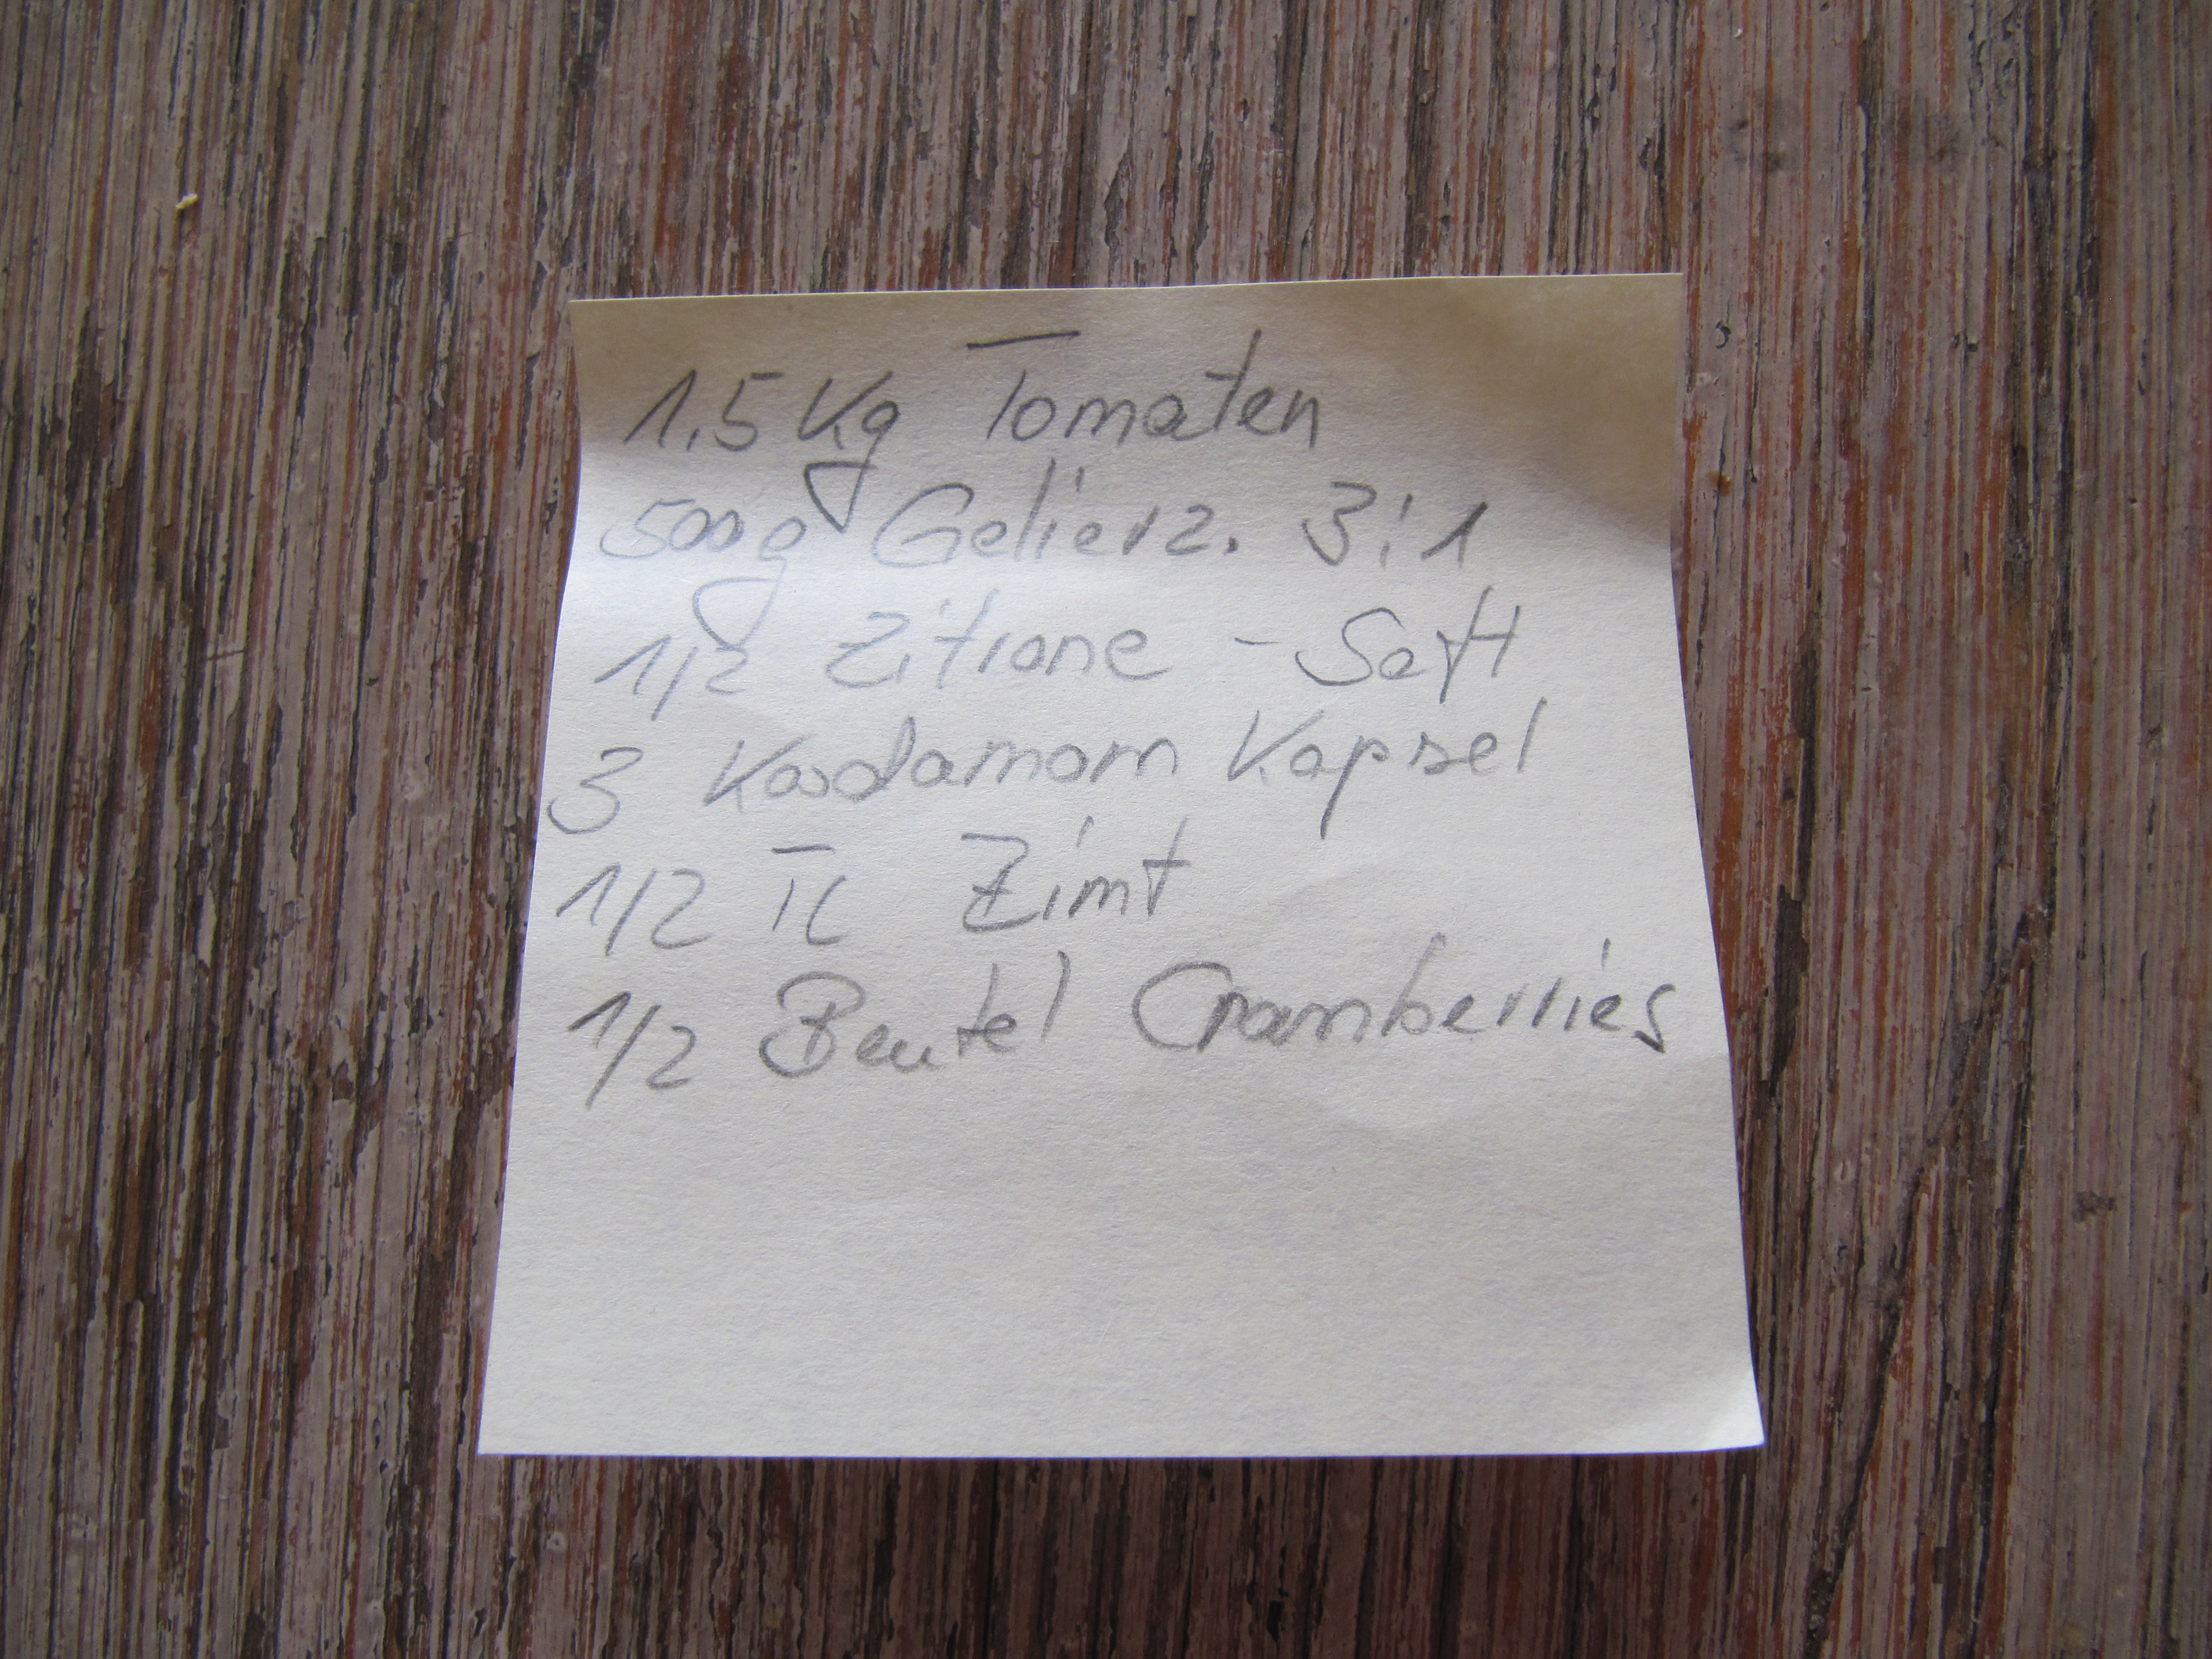 1.5 Kg Tomaten
500g Gelierz. 3:1
1/2 Zitrone - Saft
3 Kardamom Kapsel
1/2 TL Zimt
1/2 Beutel Cranberries